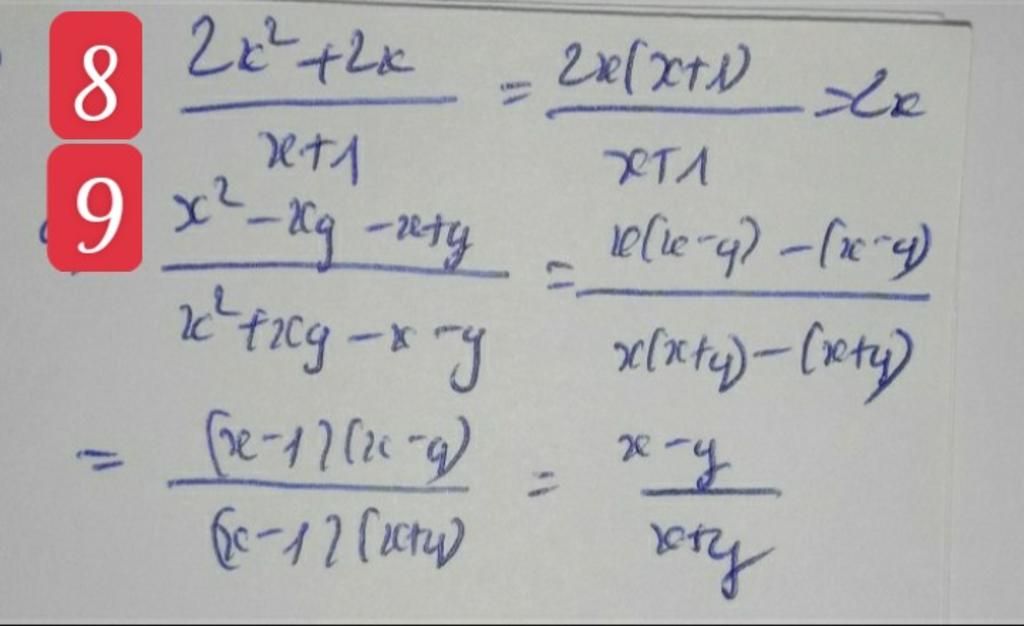 8 (2x² + 2x)/(x+1) = 2x(x+1)/(x+1) = 2x
9 (x² - xy - x + y)/(x² + xy - x - y) = (x(x-y) - (x-y))/(x(x+y) - (x+y))
= ((x-1)(x-y))/((x-1)(x+y)) = (x-y)/(x+y)